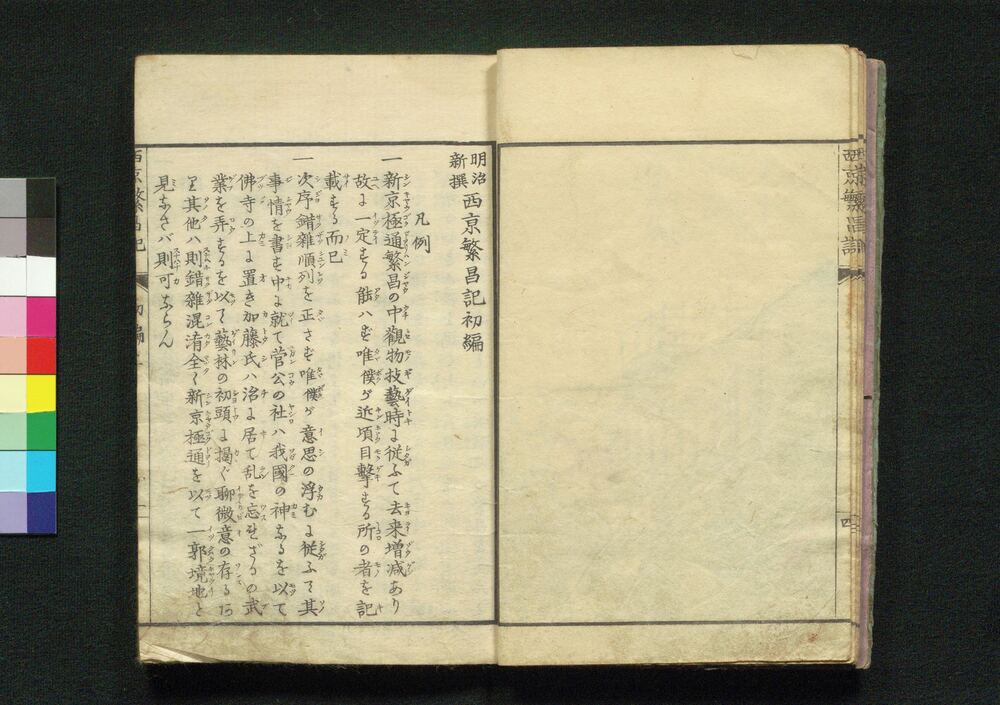 西京繁昌記
四
明治新撰西京繁昌記初編
凡例
一新京極通繁昌の中觀物技藝時に従ふて去来増減あり
故に一定する能ハず唯僕が近頃目撃する所の者を記
載する而已
一次序錯雜順列を正さず唯僕が意思の浮むに従ふて其
事情を書す中に就て菅公の社ハ我國の神なるを以て
佛寺の上に置き加藤氏ハ治に居て乱を忘せざるの武
業を弄するを以て藝林の初頭に掲ぐ聊微意の存る所
其他ハ則錯雜混淆全く新京極通を以て一郭境地と
見なさバ則可ならん
西京繁昌記 初編
一